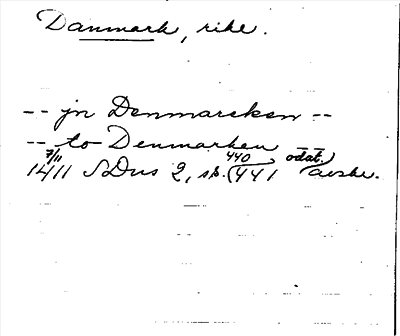 Danmark, rike.
-- jn Denmarcken --
-- to Denmarken
7/11 1411 SDns 2, sp. 440 441 odat. avskr.